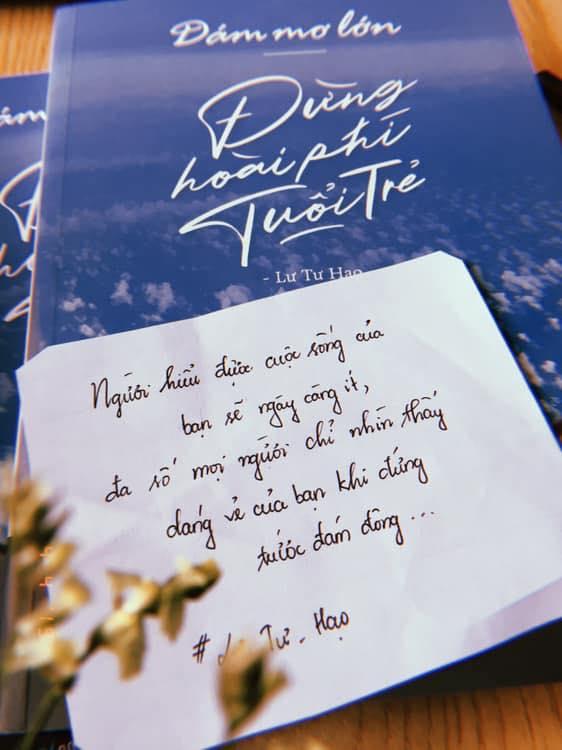 Dám mơ lớn
Đừng
hoài phí
Tuổi Trẻ
- Lư Tư Hạo
Người hiểu được cuộc sống của
bạn sẽ ngày càng ít,
đa số mọi người chỉ nhìn thấy
dáng vẻ của bạn khi đứng
trước đám đông ...
# Tư_Hạo